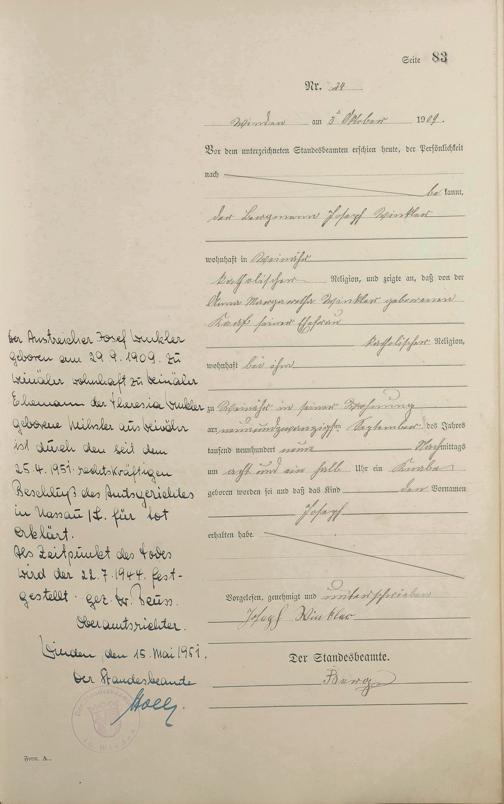 Seite 83
Nr. 24
Winden am 3. Oktober 1909.
Vor dem unterzeichneten Standesbeamten erschien heute, der Persönlichkeit
nach
be kannt,
der Bergmann Joseph Winkler
wohnhaft in Weinähr
katholischer Religion, und zeigte an, daß von der
Anna Margaretha Winkler geborenen
seiner Ehefrau
katholischer Religion,
wohnhaft bei ihm
zu Weinähr in seiner Wohnung
am neunundzwanzigsten September des Jahres
tausend neunhundert neun Nachmittags
um acht und ein halb Uhr ein Knabe
geboren worden sei und daß das Kind den Vornamen
Joseph
erhalten habe.
Vorgelesen, genehmigt und unterschrieben
Joseph Winkler
Der Standesbeamte.
Der Anstreicher Josef Winkler
geboren am 29.9.1909. zu
Weinähr wohnhaft zu Weinähr
Ehemann der Theresia Winkler
geborene aus Weinähr
ist durch den seit dem
25.4.1951 rechtskräftigen
Beschluß des Amtsgerichtes
in Nassau /L. für tot
erklärt.
Als Zeitpunkt des Todes
wird der 22.7.1944. fest-
gestellt. gez. Dr.
Oberamtsrichter.
Winden, den 15. Mai 1951.
Der Standesbeamte
Form. A.